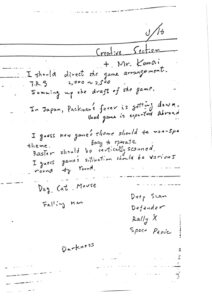 4/16
Creative Section
+ Mr. Komai
I should direct the game arrangement.
2,000 ~ 2500
Summing up the draft of the game.
In Japan, Packman's fever is getting down,
and game is exported Abroad
I guess new game's theme should be non-space
theme.
Easy to operate
Raster should be vertically scanned.
I guess game's situation should be various
round by round.
Dog, Cat, Mouse
Falling man
Deep Scan
Defender
Rally X
Space Panic
Darkness